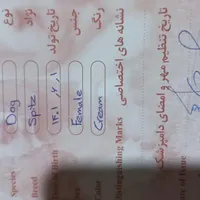 نوع Dog Species
نژاد Spitz Breed
تاریخ تولد ۱۴۰۱,۲,۱ Birth
جنس Female
رنگ Cream
نشانه های اختصاصی Distinguishing Marks
تاریخ تنظیم مهر و امضای دامپزشک of Issue